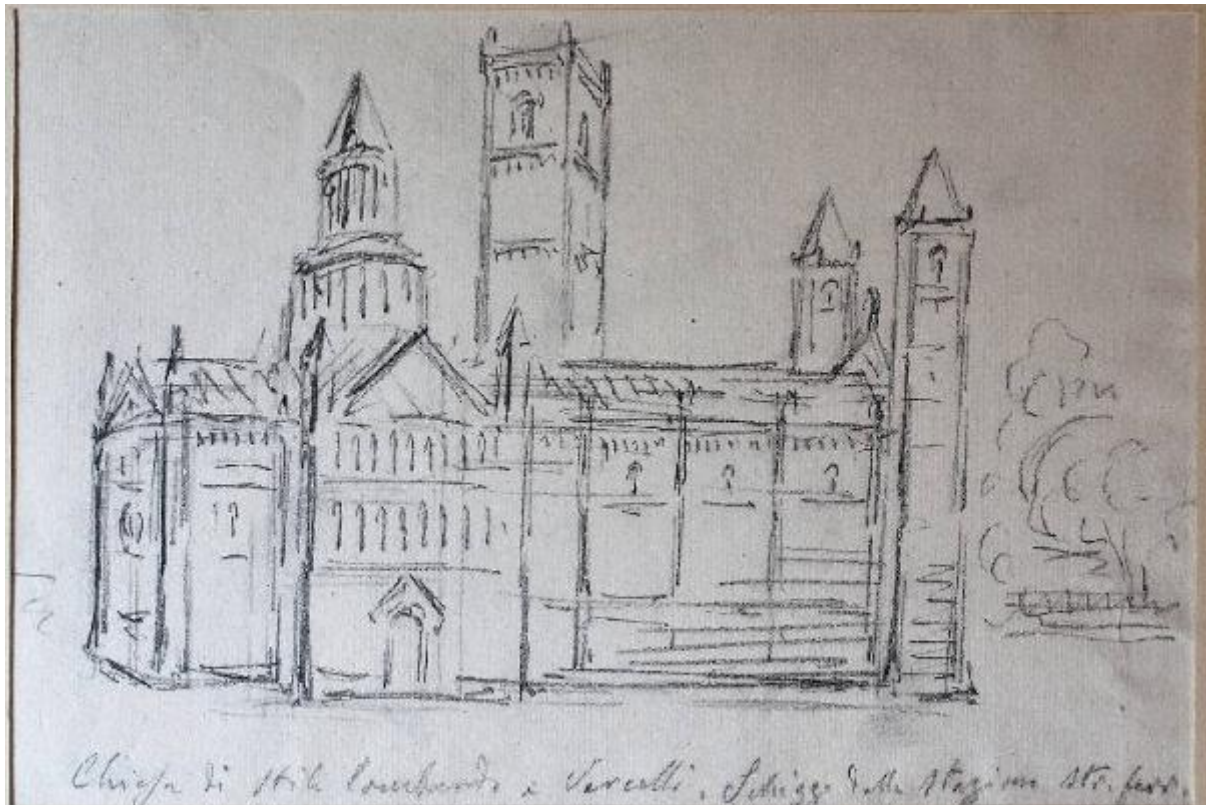 Chiesa di stile lombardo a Vercelli. Schizzo dalla stazione str. ferr.